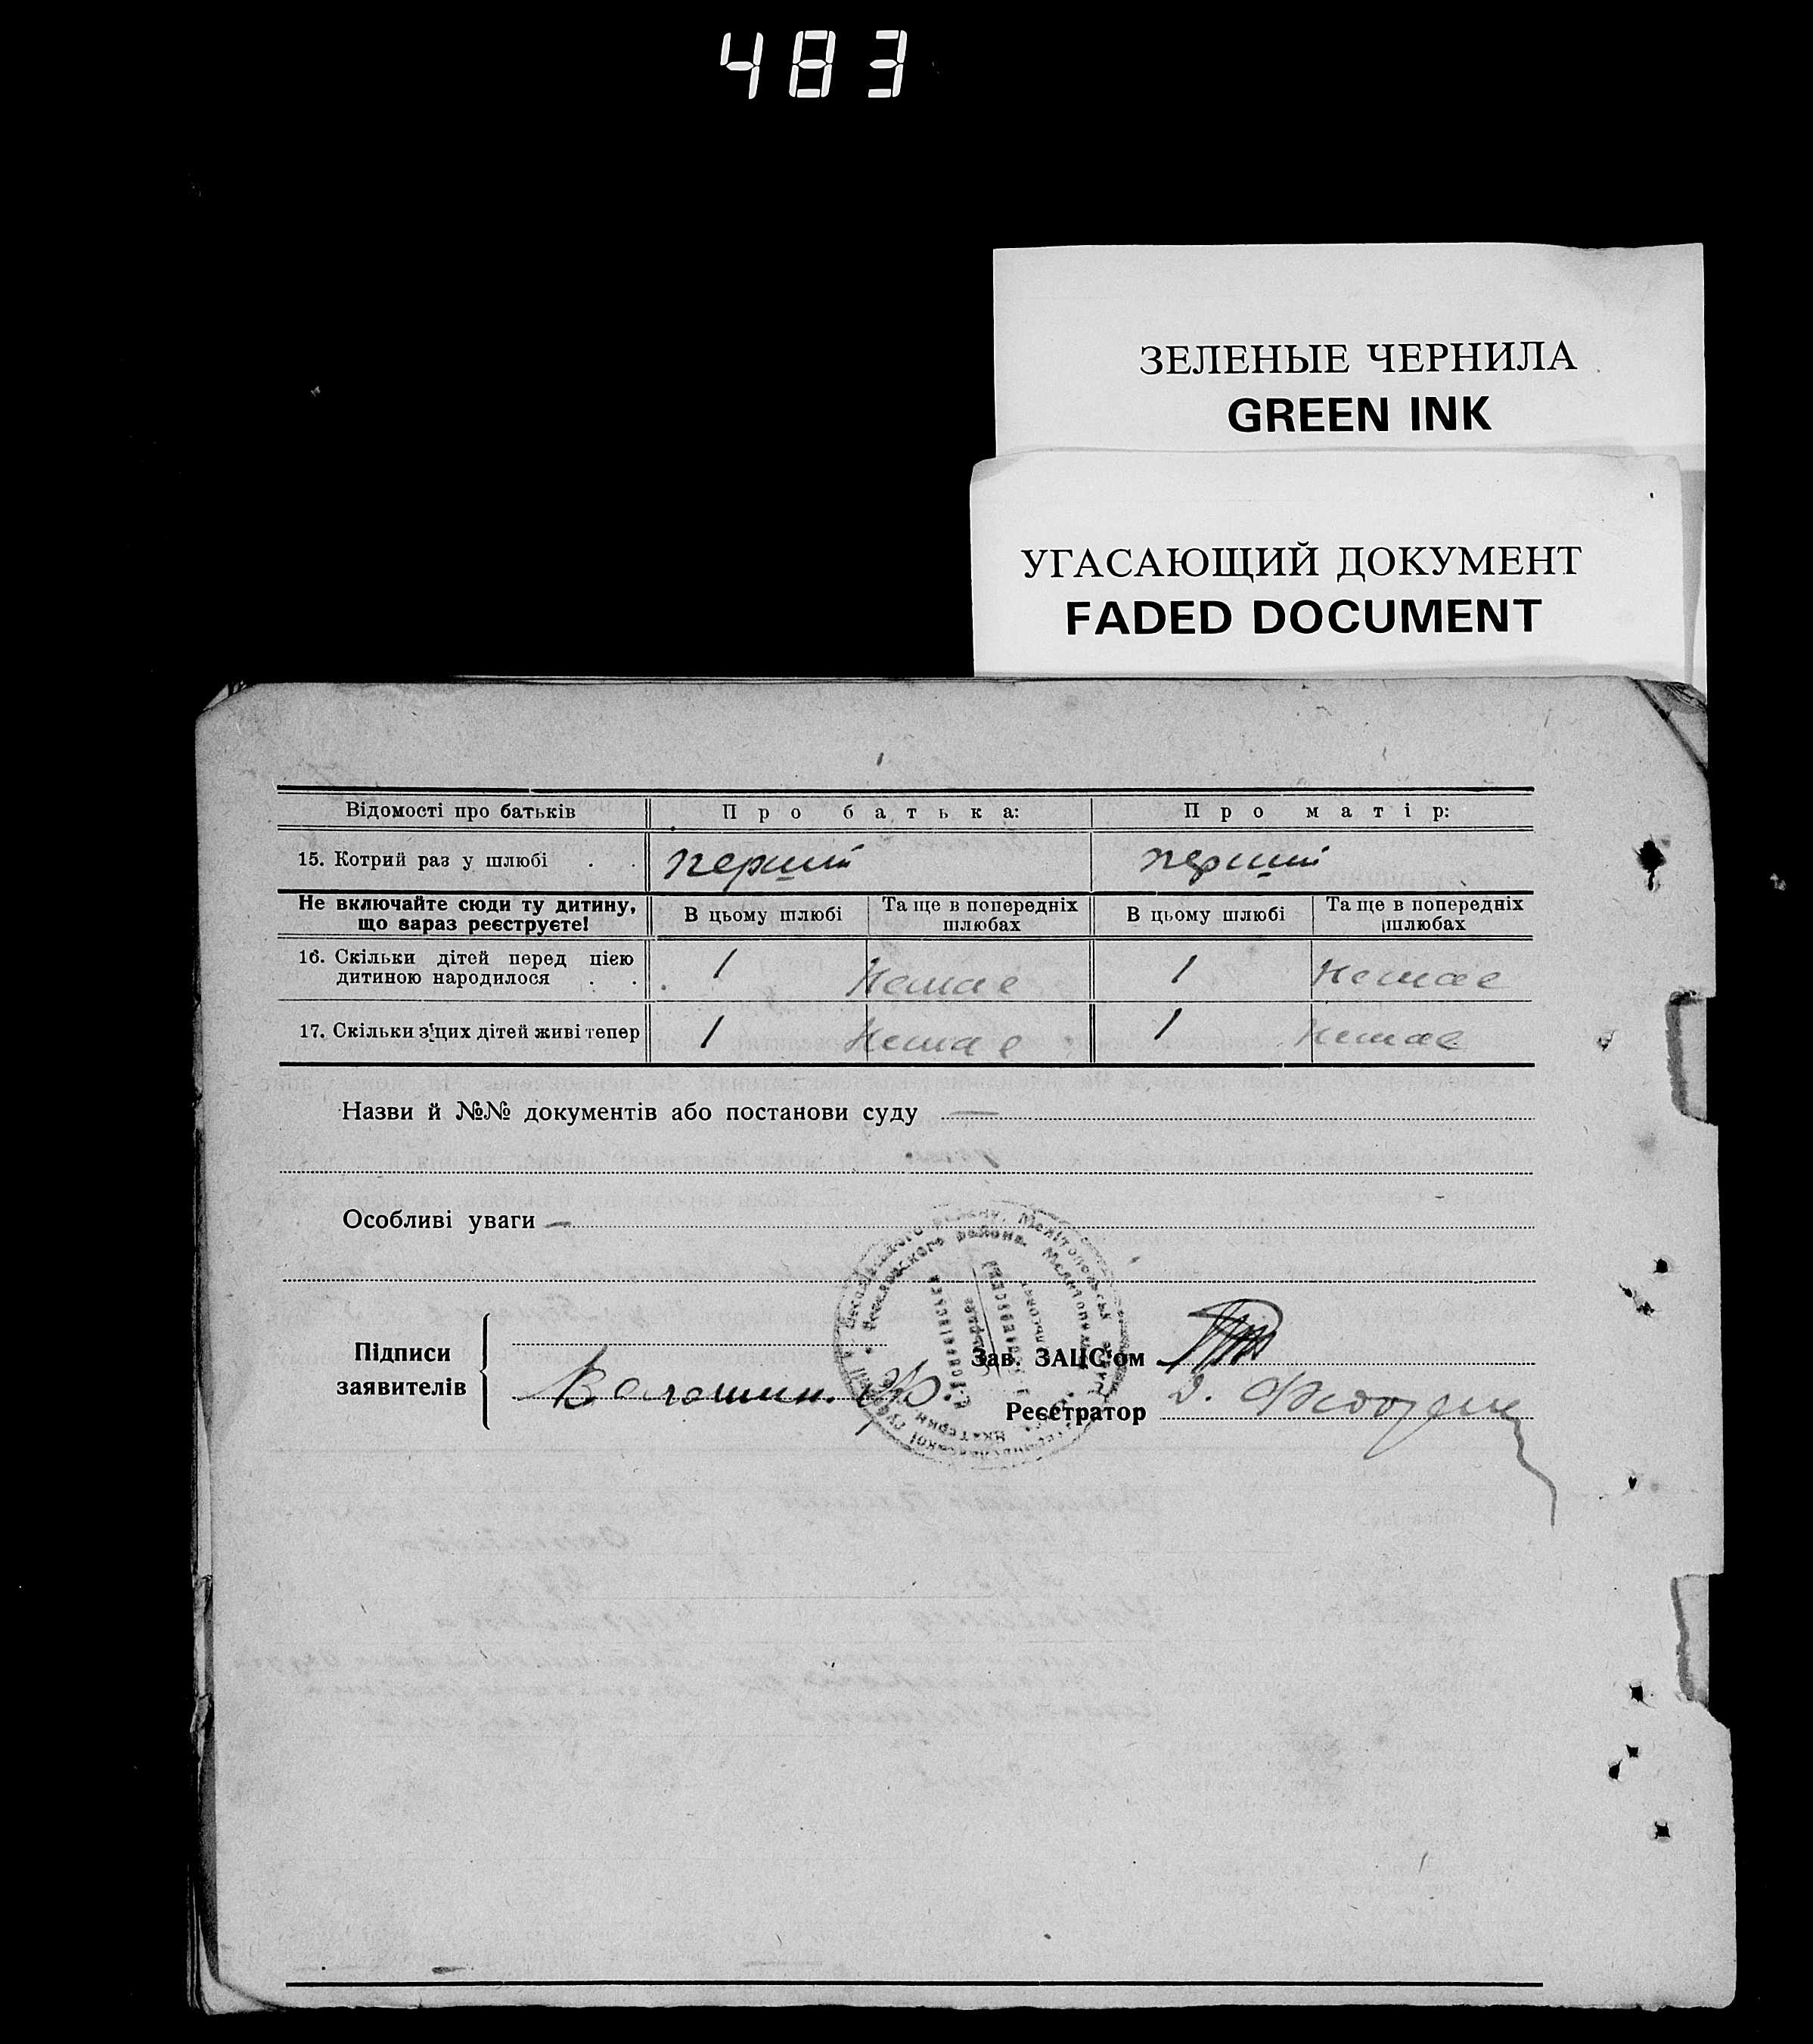 483
ЗЕЛЕНЫЕ ЧЕРНИЛА
GREEN INK
УГАСАЮЩИЙ ДОКУМЕНТ
FADED DOCUMENT
Відомості про батьків Про батька: Про матір:
15. Котрий раз у шлюбі . . перший перший
Не включайте сюди ту дитину, що зараз реєструєте! В цьому шлюбі Та ще в попередніх шлюбах В цьому шлюбі Та ще в попередніх шлюбах
16. Скільки дітей перед цією дитиною народилося . . 1 Немає 1 Немає
17. Скільки з цих дітей живі тепер 1 Немає 1 Немає
Назви й №№ документів або постанови суду —
Особливі уваги —
Підписи заявителів Волошин.
Зав. ЗАЦС'ом
Реєстратор
района. Мелитоп